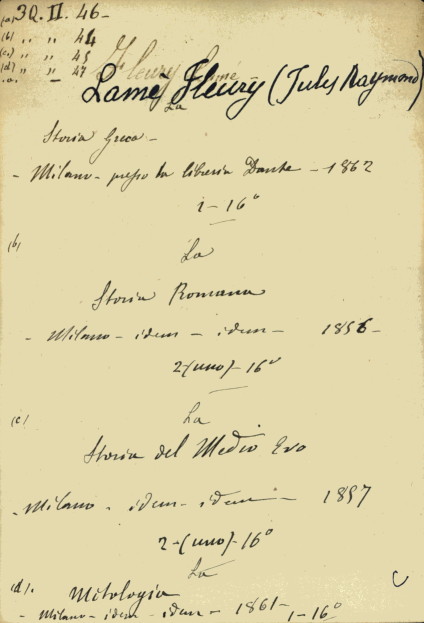 (a) 3Q. II. 46-
(b) " " 44
(c) " " 45
(d) " " 47
Fleury Lamé
Lamé Fleury (Jules Raymond)
La
Storia Greca -
- Milano - presso la libreria Dante - 1862
1 - 16°
(b)
La
Storia Romana
- Milano - idem - idem - 1856 -
2 (uno) - 16°
(c)
La
Storia del Medio Evo
- Milano - idem - idem - 1857
2 - (uno) - 16°
La
(d).
Mitologia
- Milano - idem - idem - 1861 - 1 - 16°